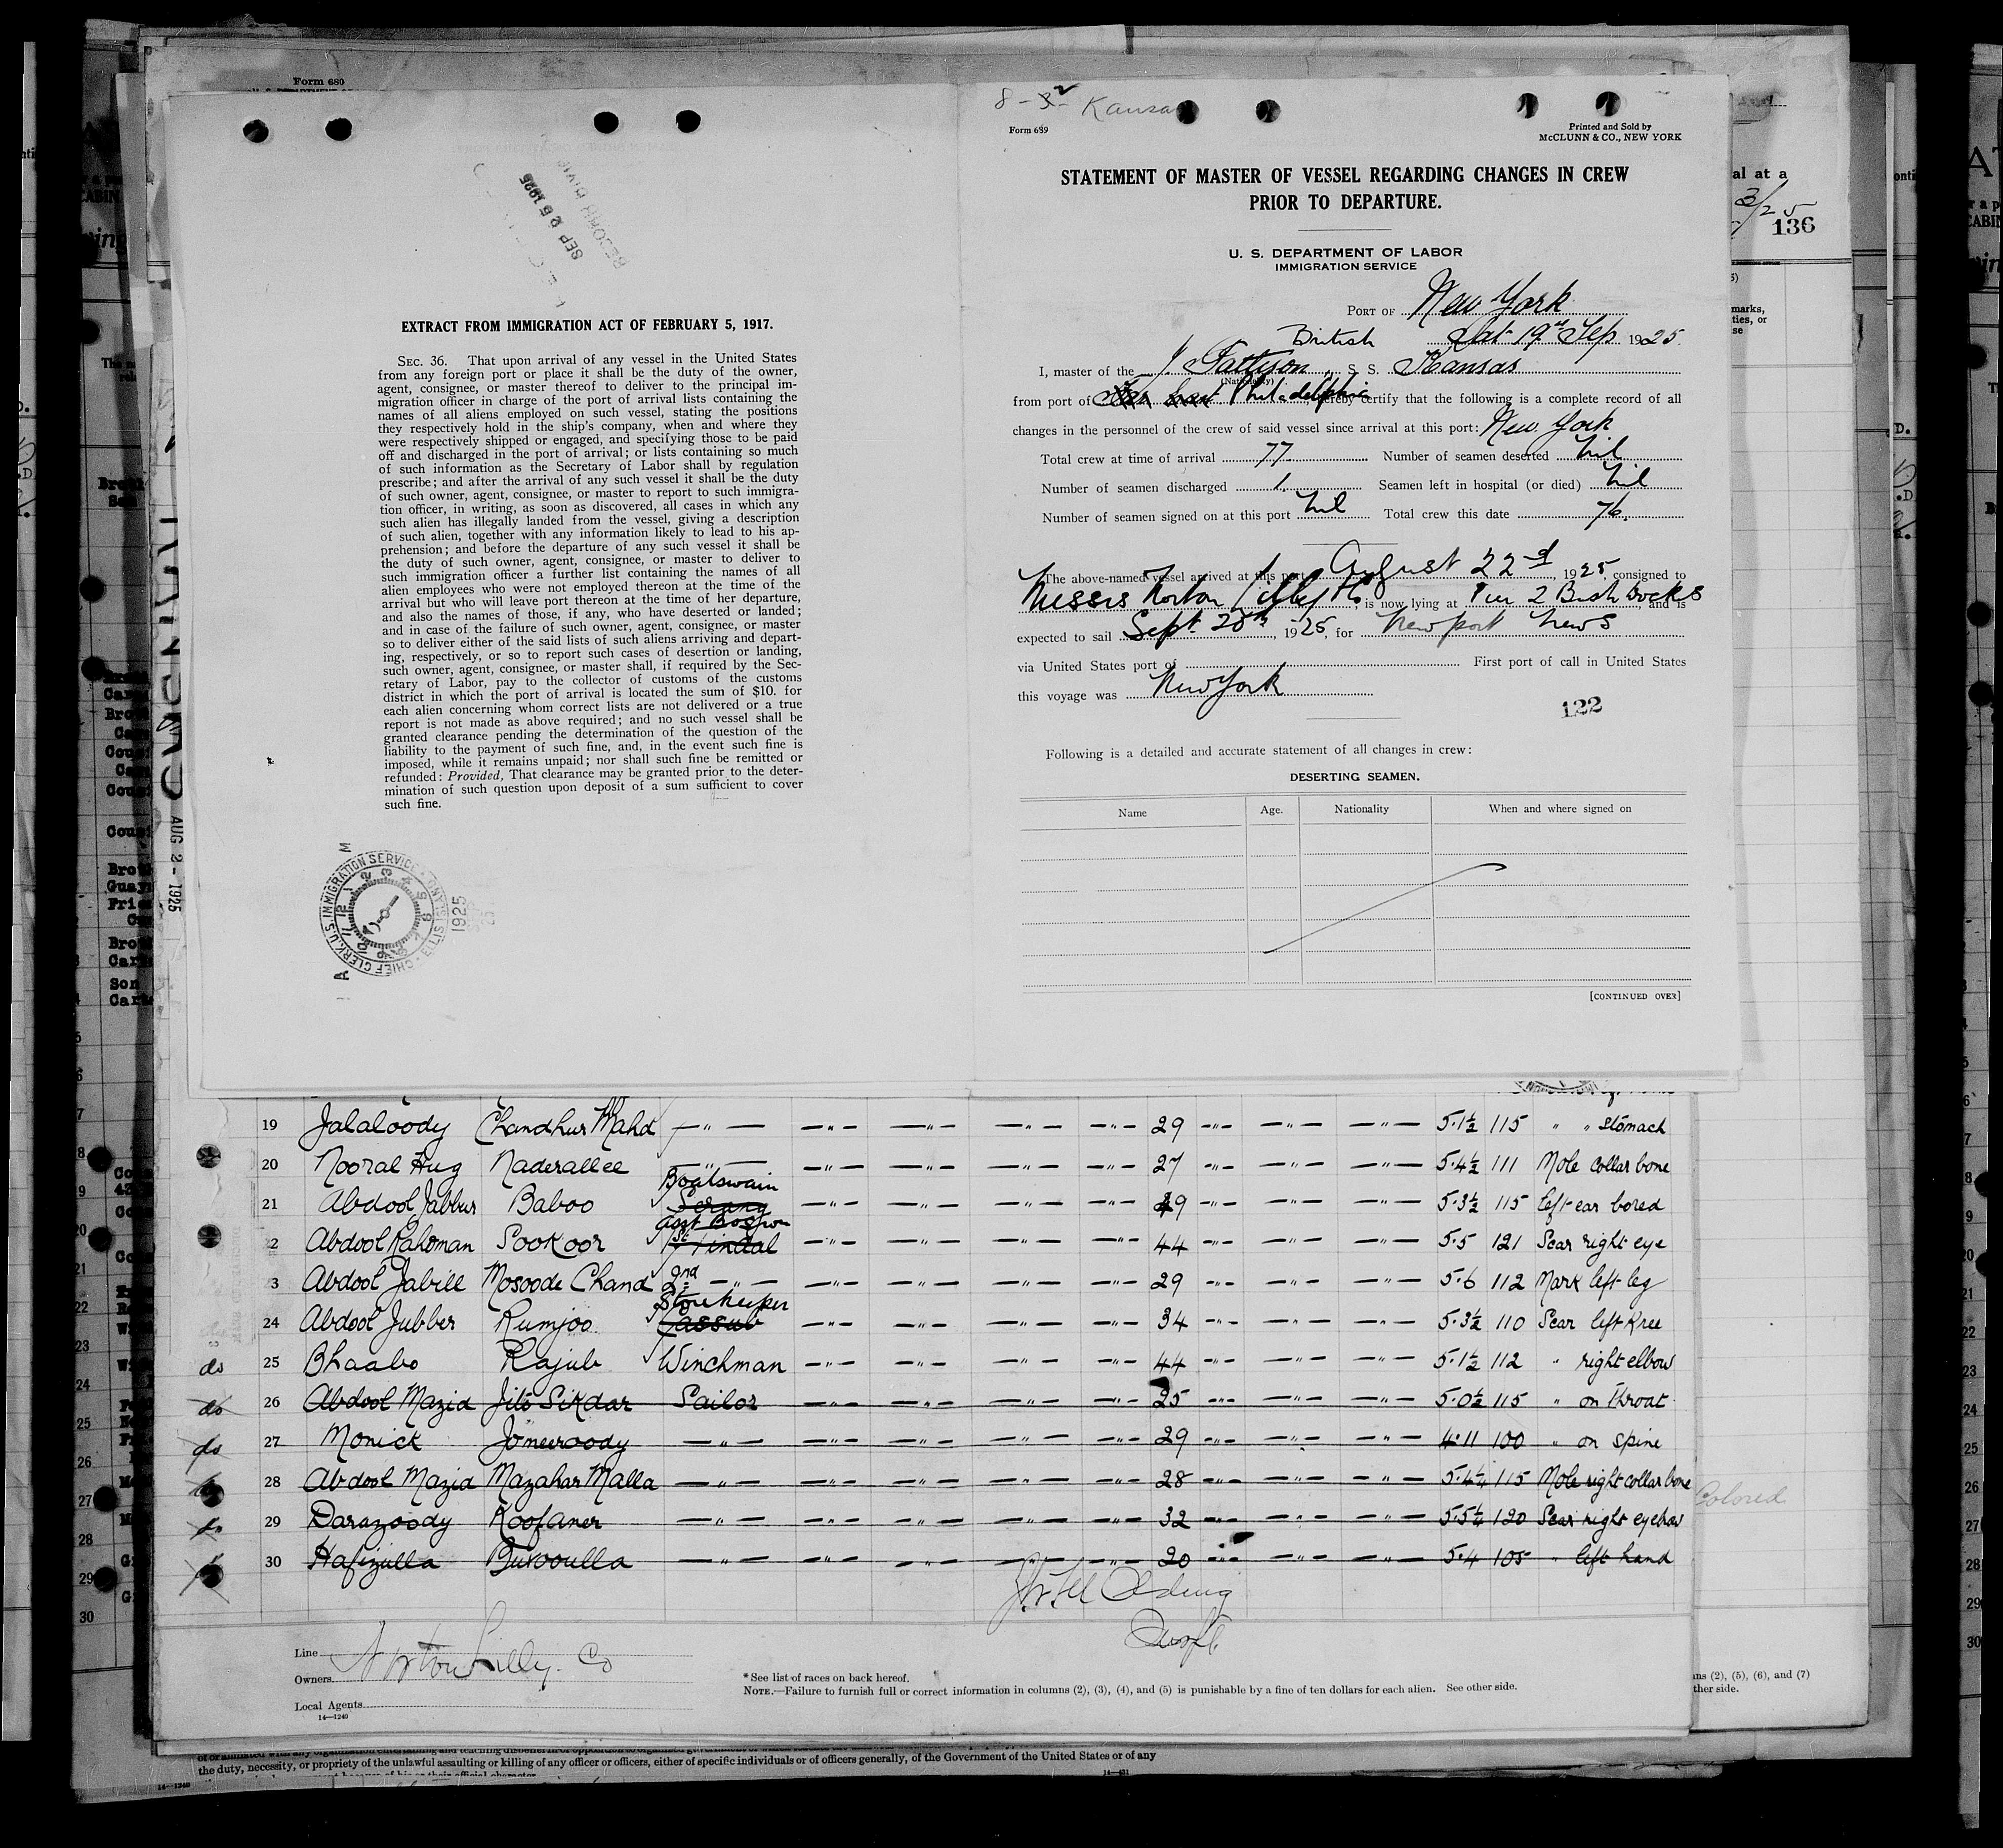 Form 680
SEP 25 1925
RECORD DIVIS
EXTRACT FROM IMMIGRATION ACT OF FEBRUARY 5, 1917.
SEC. 36. That upon arrival of any vessel in the United States
from any foreign port or place it shall be the duty of the owner,
agent, consignee, or master thereof to deliver to the principal im-
migration officer in charge of the port of arrival lists containing the
names of all aliens employed on such vessel, stating the positions
they respectively hold in the ship's company, when and where they
were respectively shipped or engaged, and specifying those to be paid
off and discharged in the port of arrival; or lists containing so much
of such information as the Secretary of Labor shall by regulation
prescribe; and after the arrival of any such vessel it shall be the duty
of such owner, agent, consignee, or master to report to such immigra-
tion officer, in writing, as soon as discovered, all cases in which any
such alien has illegally landed from the vessel, giving a description
of such alien, together with any information likely to lead to his ap-
prehension; and before the departure of any such vessel it shall be
the duty of such owner, agent, consignee, or master to deliver to
such immigration officer a further list containing the names of all
alien employees who were not employed thereon at the time of the
arrival but who will leave port thereon at the time of her departure,
and also the names of those, if any, who have deserted or landed;
and in case of the failure of such owner, agent, consignee, or master
so to deliver either of the said lists of such aliens arriving and depart-
ing, respectively, or so to report such cases of desertion or landing,
such owner, agent, consignee, or master shall, if required by the Sec-
retary of Labor, pay to the collector of customs of the customs
district in which the port of arrival is located the sum of $10. for
each alien concerning whom correct lists are not delivered or a true
report is not made as above required; and no such vessel shall be
granted clearance pending the determination of the question of the
liability to the payment of such fine, and, in the event such fine is
imposed, while it remains unpaid; nor shall such fine be remitted or
refunded: Provided, That clearance may be granted prior to the deter-
mination of such question upon deposit of a sum sufficient to cover
such fine.
CHIEF CLERK, U.S. IMMIGRATION SERVICE ELLIS ISLAND
1925
AUG 2 - 1925
8 - 2 - Kansa
Form 689
Printed and Sold by
McCLUNN & CO., NEW YORK
STATEMENT OF MASTER OF VESSEL REGARDING CHANGES IN CREW
PRIOR TO DEPARTURE.
U. S. DEPARTMENT OF LABOR
IMMIGRATION SERVICE
PORT OF New York
British Sat 19th Sep 1925.
I, master of the J. Pattison S. S. Kansas
(Nationality)
from port of Philadelphia hereby certify that the following is a complete record of all
changes in the personnel of the crew of said vessel since arrival at this port: New York
Total crew at time of arrival 77. Number of seamen deserted Nil
Number of seamen discharged 1. Seamen left in hospital (or died) Nil
Number of seamen signed on at this port Nil Total crew this date 76.
The above-named vessel arrived at this port August 22nd, 1925, consigned to
Messrs Norton Lilly & Co. is now lying at Pier 2 Bush Docks and is
expected to sail Sept. 20th, 1925, for Newport News
via United States port of First port of call in United States
this voyage was New York
122
Following is a detailed and accurate statement of all changes in crew:
DESERTING SEAMEN.
Name Age. Nationality When and where signed on
[CONTINUED OVER]
al at a
3/25
136
19 Jalaloody Chandhur Mahd — " — 29 5.1½ 115 " " Stomach
20 Nooral Hug Naderallee — " — 27 5.4½ 111 Mole collar bone
Boatswain
21 Abdool Jabbur Baboo Serang 49 5.3½ 115 Left ear bored
Asst Bosswn
2 Abdool Rahoman Sookoor 1st Tindal 44 5.5 121 Scar right eye
3 Abdool Jabill Mosoode Chand 2nd — " — 29 5.6 112 Mark left leg
Storekeeper
24 Abdool Jubber Rumjoo Cassub 34 5.3½ 110 Scar left Knee
do 25 Bhaabo Rajub Winchman 44 5.1½ 112 " right elbow
do 26 Abdool Mazid Jito Sikdar Sailor 25 5.0½ 115 " on Throat
do 27 Monick Joneeroody — " — 29 4.11 100 " on spine
28 Abdool Mazid Mazahar Malla — " — 28 5.4¼ 115 Mole right collar bone
29 Darazoody Koofaner — " — 32 5.5¼ 120 Scar right eyebrow
30 Hafizulla Burooulla — " — 20 5.4 105 " left hand
Colored
Line
Owners Norton Lilly Co
Local Agents
14—1240
*See list of races on back hereof.
NOTE.—Failure to furnish full or correct information in columns (2), (3), (4), and (5) is punishable by a fine of ten dollars for each alien. See other side.
ns (2), (5), (6), and (7)
ther side.
the duty, necessity, or propriety of the unlawful assaulting or killing of any officer or officers, either of specific individuals or of officers generally, of the Government of the United States or of any